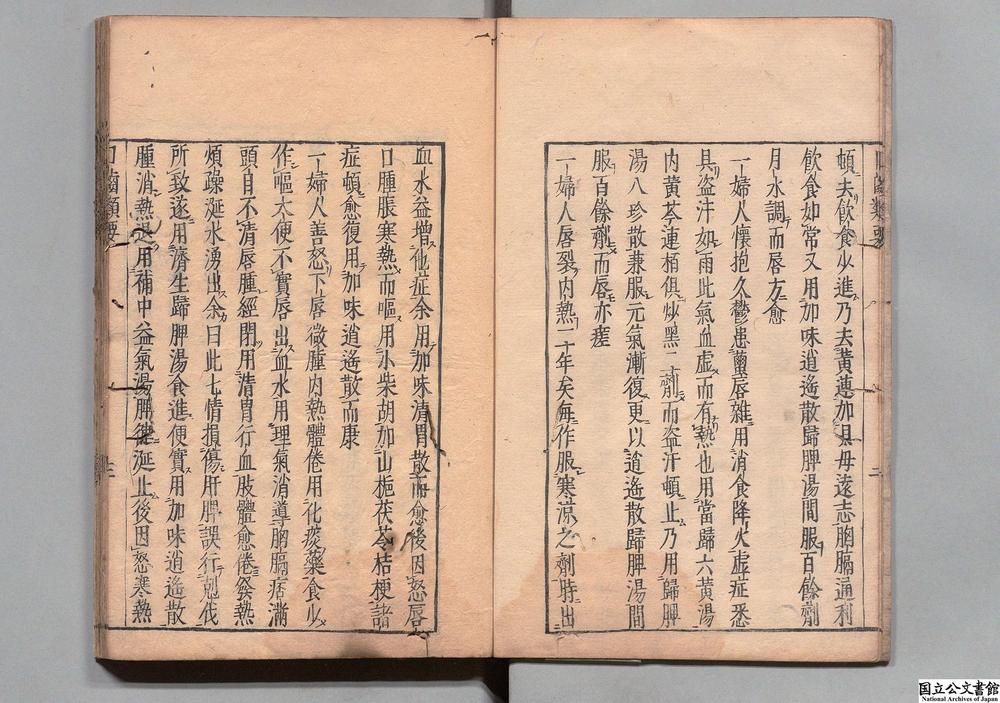 頓去飲食少進乃去黃連加貝母遠志胸膈通利
飲食如常又用加味逍遙散歸脾湯間服百餘劑
月水調而唇方愈
一婦人懷抱久鬱患繭唇雜用消食降火虛症悉
具盜汗如雨此氣血虛而有熱也用當歸六黃湯
内黃芩連栢俱炒黑二劑而盜汗頓止乃用歸脾
湯八珍散兼服元氣漸復更以逍遙散歸脾湯間
服百餘劑而唇亦瘥
一婦人唇裂内熱二十年矣每作服寒涼之劑時出
血水益增他症余用加味清胃散而愈後因怒唇
口腫脹寒熱而嘔用小柴胡加山梔茯苓桔梗諸
症頓愈復用加味逍遙散而康
一婦人善怒下唇微腫内熱體倦用化痰藥食少
作嘔大便不實唇出血水用理氣消導胸膈痞滿
頭目不清唇腫經閉用清胃行血肢體愈倦發熱
煩躁涎水湧出余曰此七情損傷肝脾誤行剋伐
所致遂用濟生歸脾湯食進便實用加味逍遙散
腫消熱退用補中益氣湯脾健涎止後因怒寒熱
口齒類要
二
国立公文書館
National Archives of Japan